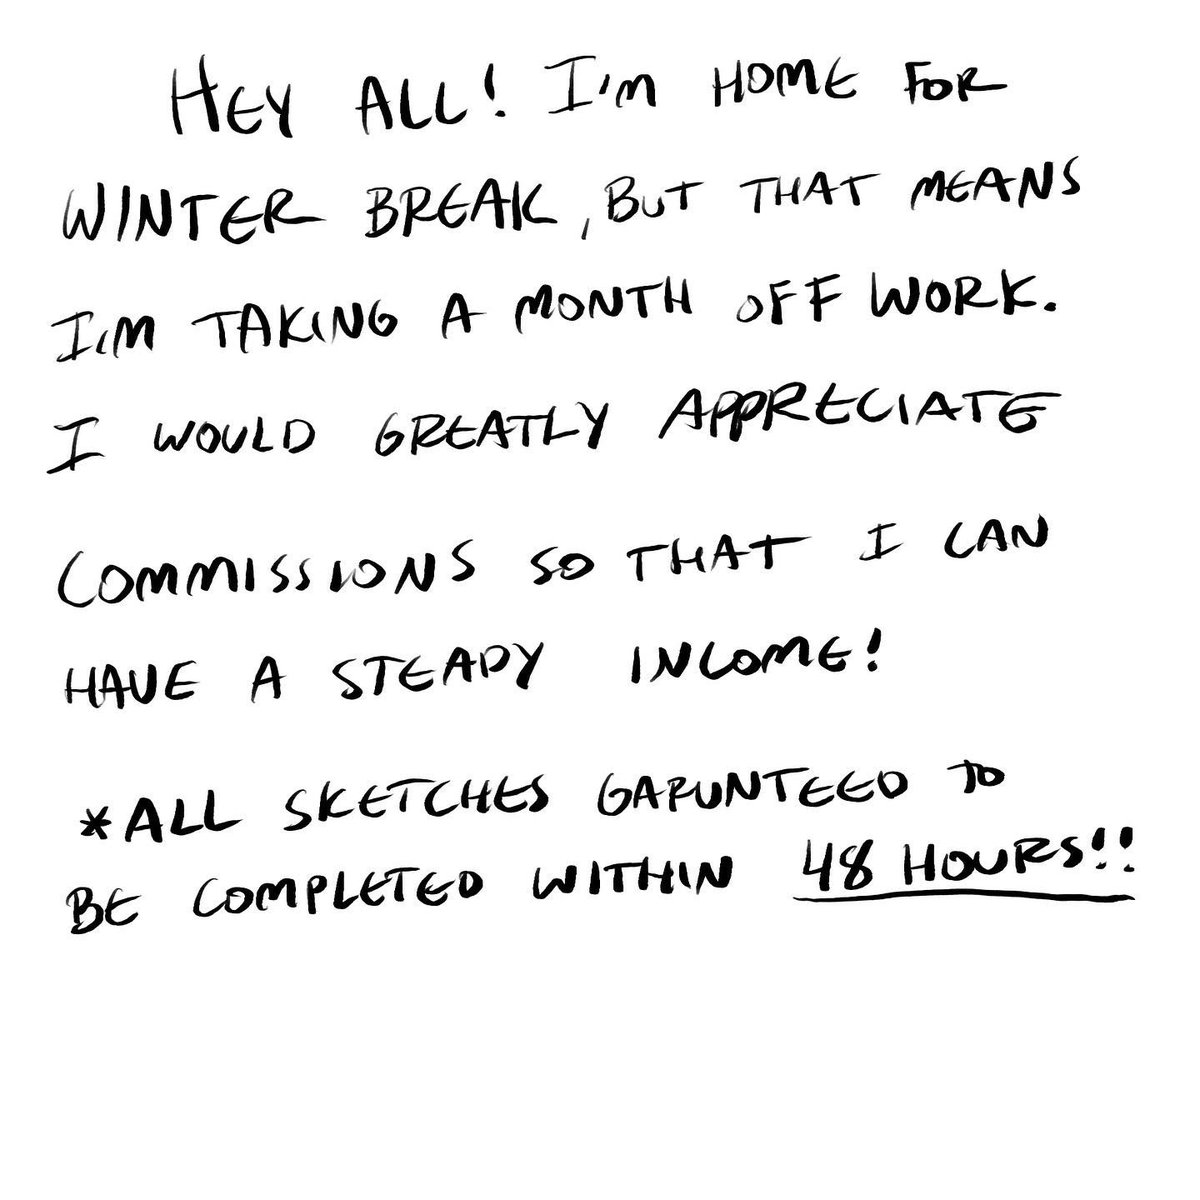 HEY ALL! I'M HOME FOR
WINTER BREAK, BUT THAT MEANS
I'M TAKING A MONTH OFF WORK.
I WOULD GREATLY APPRECIATE
COMMISSIONS SO THAT I CAN
HAVE A STEADY INCOME!
*ALL SKETCHES GARUNTEED TO
BE COMPLETED WITHIN 48 HOURS!!